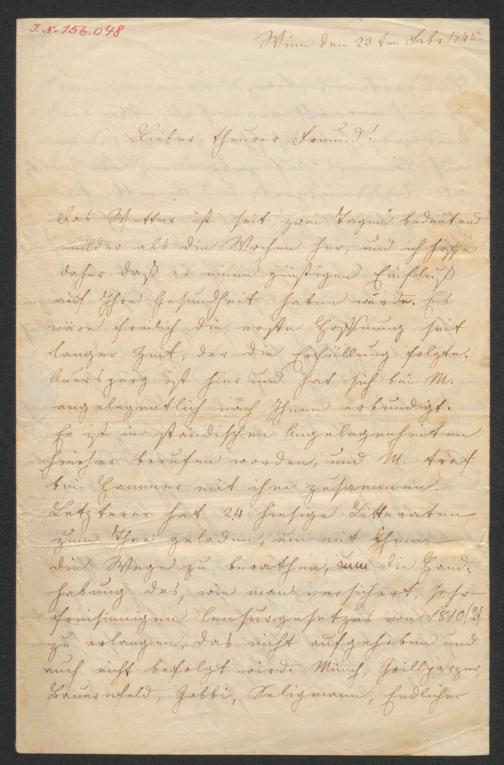 I. N. 156.048
Wien den 23ten Febr 1845.
Lieber theurer Freund!
Das Wetter ist seit zwei Tagen bedeutend
milder als die Wochen her, und ich hoffe
daher daß es einen günstigen Einfluß
auf Ihre Gesundheit haben würde. Es
wäre freilich die erste Hoffnung seit
langer Zeit, der die Erfüllung folgte.
Auersperg ist hier und hat sich bei M.
angelegentlich nach Ihnen erkundigt.
Er ist in ständischen Angelegenheiten
hieher berufen worden, und M. traf
bei Hammer mit ihm zusammen.
Letzterer hat 24 hiesige Litteraten
zum Thee geladen, um mit Ihnen
die Wege zu berathen, um die Hand-
habung des, wie man versichert, sehr
freisinnigen Censurgesetzes von 1810 (?)
zu erlangen, das nicht aufgehoben und
auch nicht befolgt wird. Münch, Grillparzer,
Bauernfeld, Gobbi, Seligmann, Endlicher